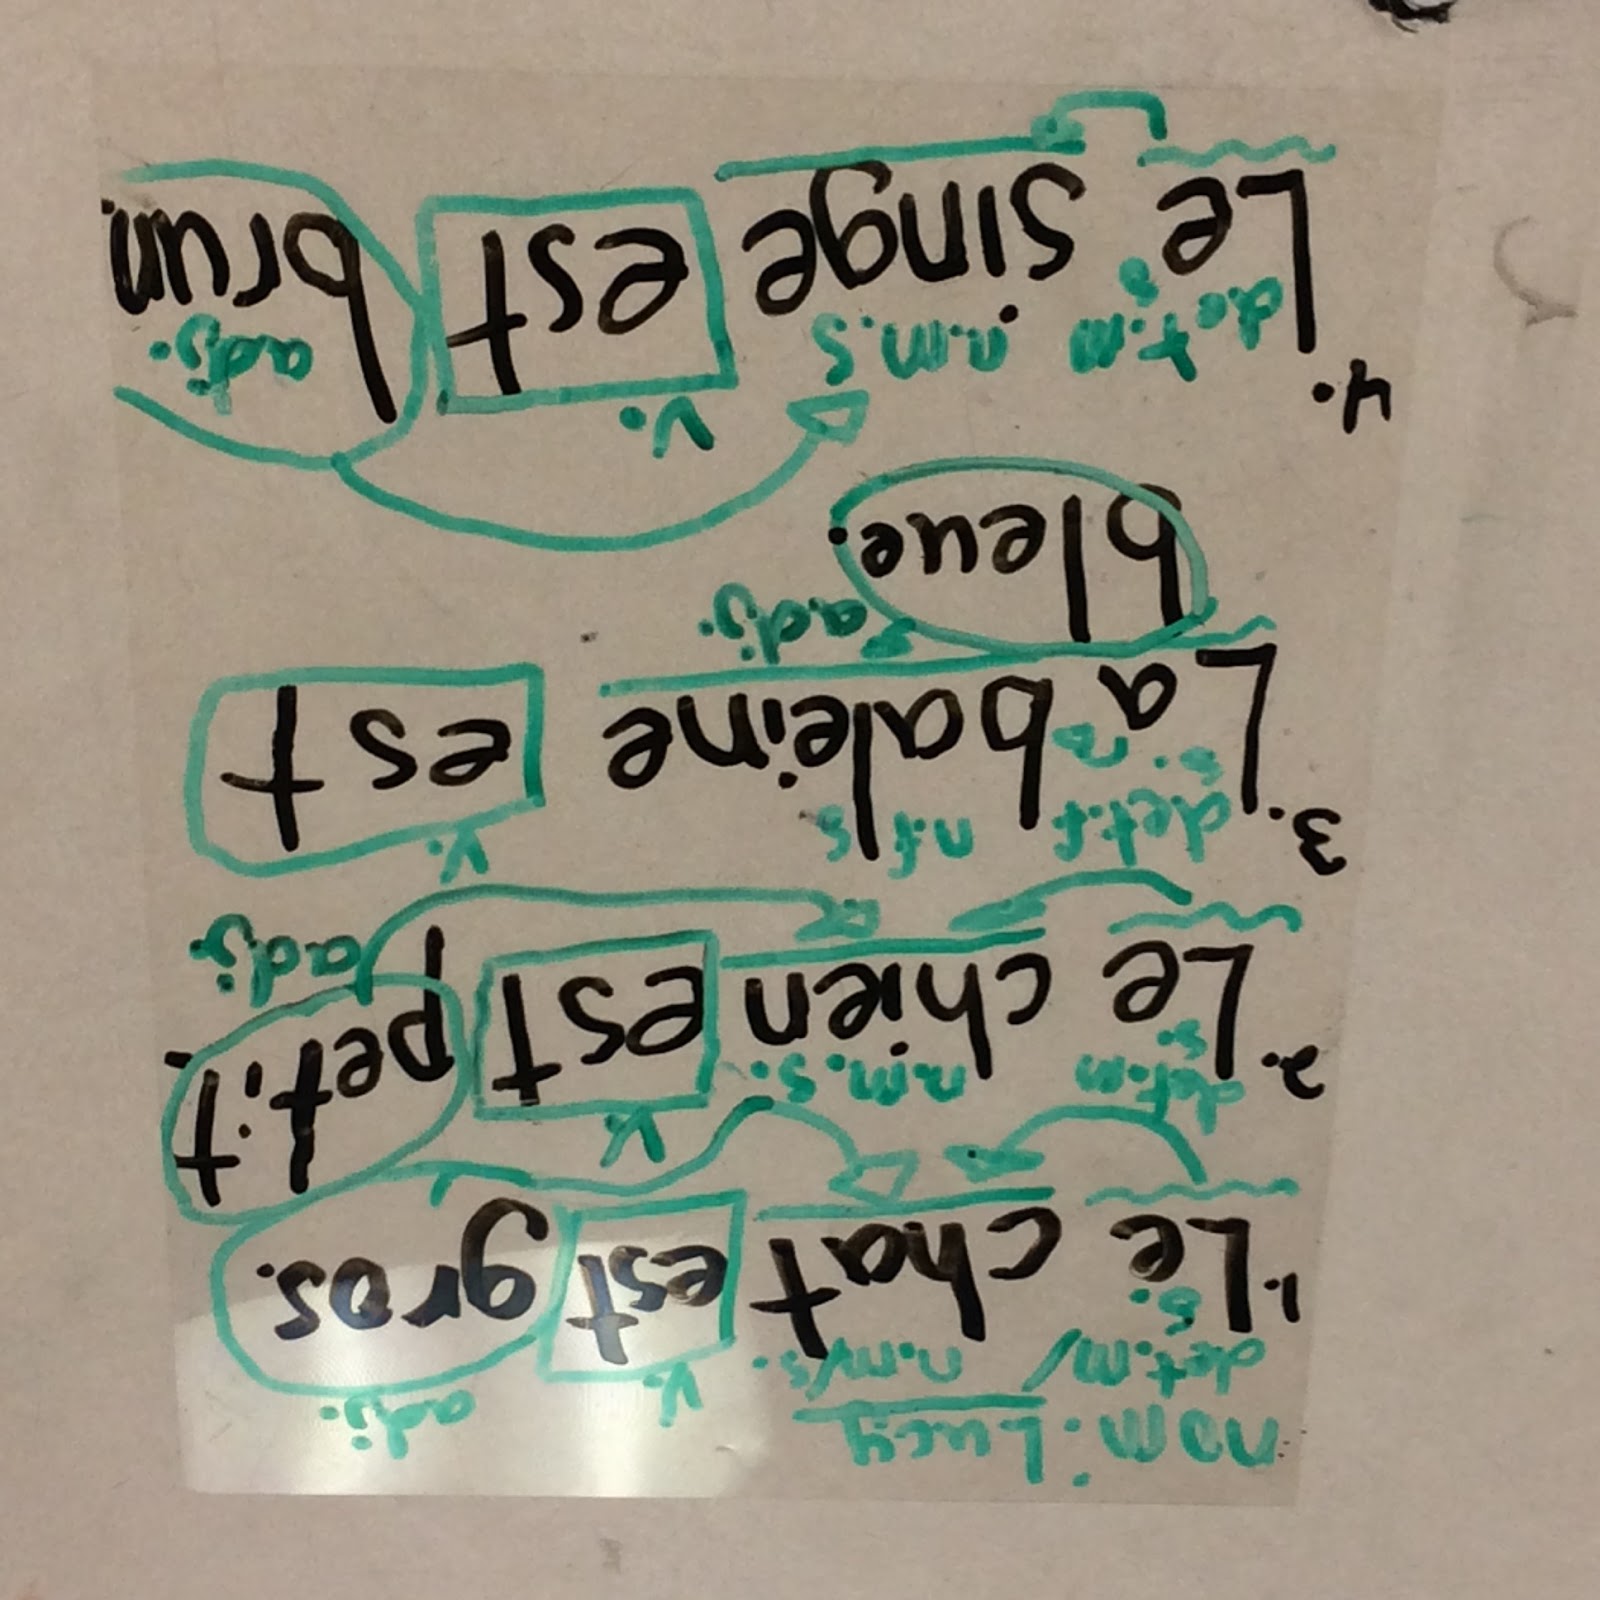 nom: Lucy
det.m/s. n.m/s. v. adj.
1. Le chat est gros.
det.m s. n.m.s. v. adj.
2. Le chien est petit.
det.f s. n.f.s v.
3. La baleine est
adj.
bleue.
v.
4. Le singe est brun.
det.m s n.m.s adj.